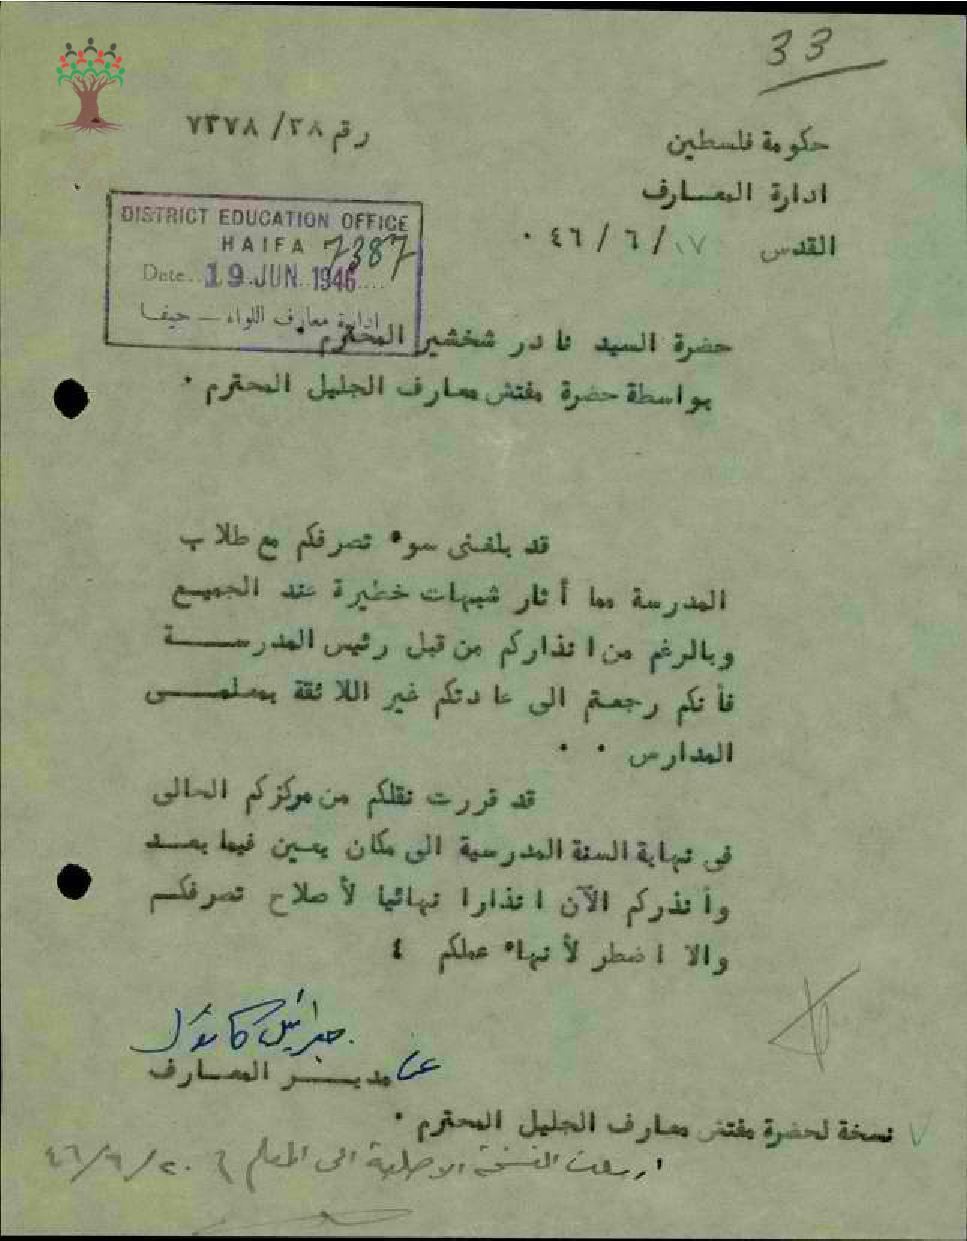 33
رقم ٣٨/ ٧٣٧٨
حكومة فلسطين
ادارة المعارف
القدس ١٧/ ٦ / ٤٦ ٠
DISTRICT EDUCATION OFFICE
HAIFA 7387
Date 19 JUN 1946
ادارة معارف اللواء – حيفا
حضرة السيد نادر شخشير المحترم ٠
بواسطة حضرة مفتش معارف الجليل المحترم ٠
قد بلغنى سوء تصرفكم مع طلاب
المدرسة مما أثار شبهات خطيرة عند الجميع
وبالرغم من انذاركم من قبل رئيس المدرسة
فأنكم رجعتم الى عادتكم غير اللائقة بمعلمى
المدارس ٠ ٠
قد قررت نقلكم من مركزكم الحالى
فى نهاية السنة المدرسية الى مكان يعين فيما بعد
وأنذركم الآن انذارا نهائيا لأصلاح تصرفكم
والا اضطر لأنهاء عملكم ٤
جبرائيل كاتول
عن مديـر المعـارف
نسخة لحضرة مفتش معارف الجليل المحترم ٠
ارسلت النسخة الاصلية الى المعلم ٢٠/٦/٤٦